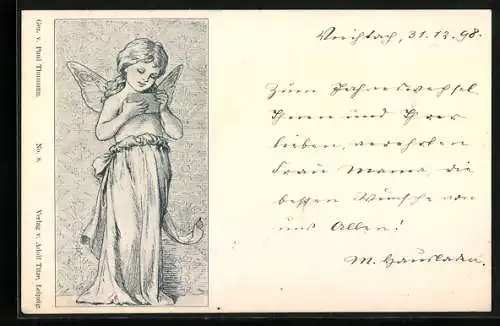 Gez. v. Paul Thumann.
No. 8.
Verlag v. Adolf Titze, Leipzig
31.12.98.
Zum Jahreswechsel
Ihnen und Ihrer
lieben, verehrten
Frau Mama, die
besten Wünsche von
uns Allen!
M. Hausladen.